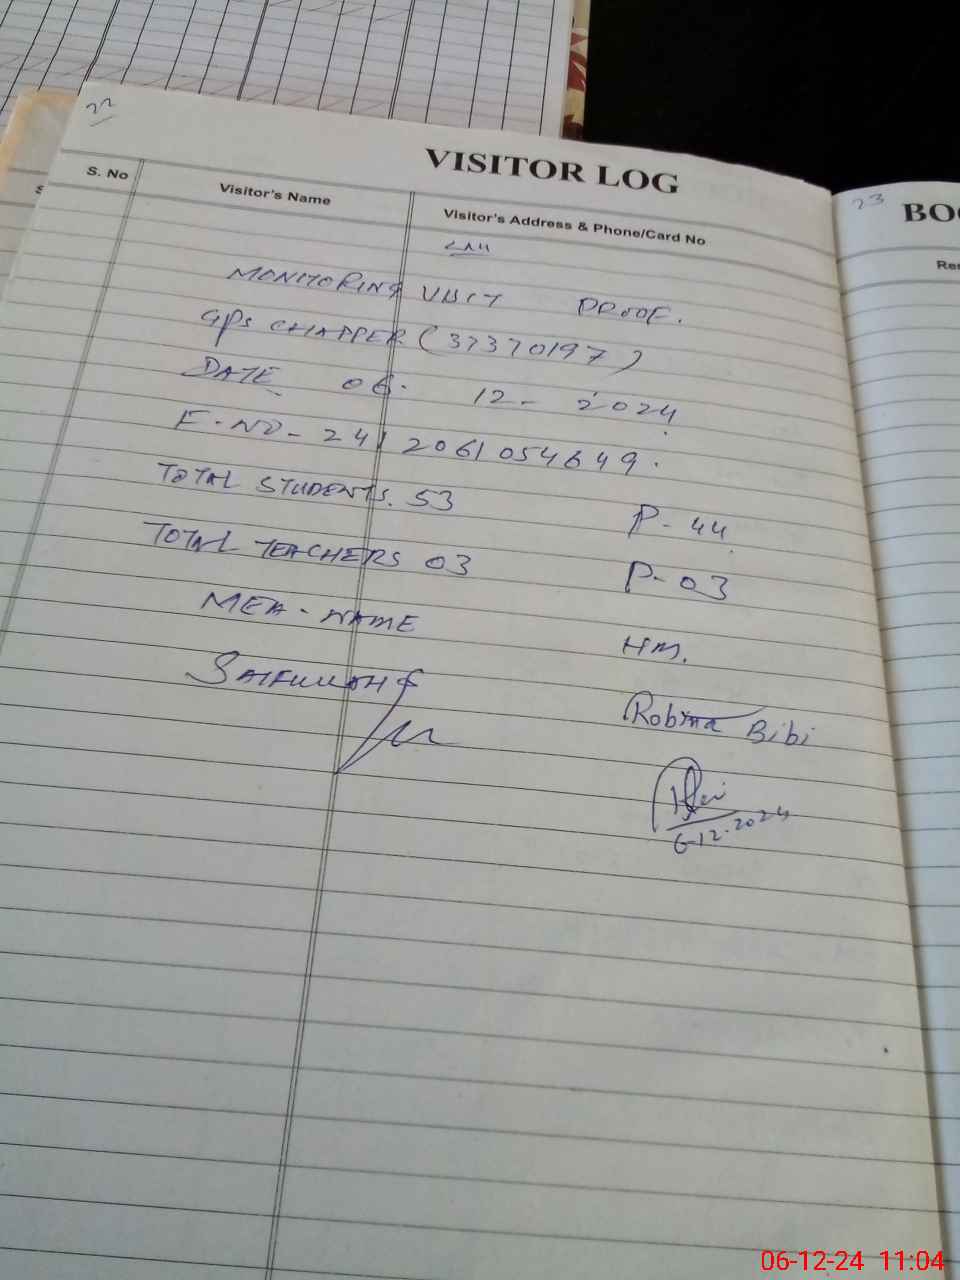 22
VISITOR LOG
S. No
Visitor's Name
Visitor's Address & Phone/Card No
MONITORING VISIT PROOF.
GPS CHAPPER (37370197)
DATE 06. 12 - 2024
E-NO - 241 2061054649.
TOTAL STUDENTS. 53 P- 44
TOTAL TEACHERS 03 P-03
MEA - NAME HM.
SAIFULLAH Robina Bibi
6-12-2024
23
BOO
Rer
S
06-12-24 11:04